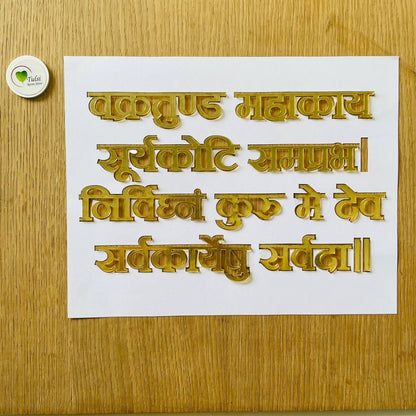 Tulsi
वक्रतुण्ड महाकाय
सूर्यकोटि समप्रभ।
निर्विघ्नं कुरु मे देव
सर्वकार्येषु सर्वदा॥